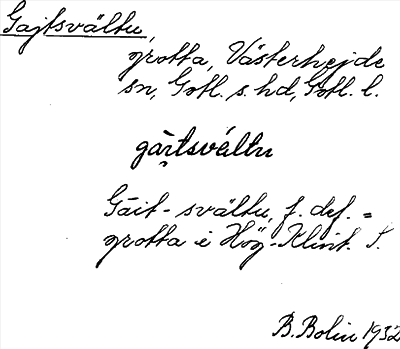 Gajtsvältu,
grotta, Västerhejde
sn, Gotl. s. hd, Gotl. l.
gàı̣tsvéltu
Gáit-svältu, f. def. =
grotta i Hög-Klint. S.
B. Bolin 1932